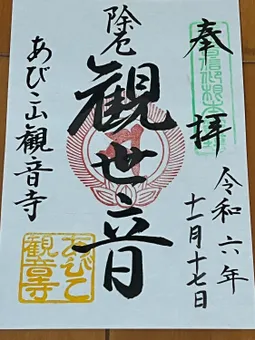 奉拝
令和六年
十一月十七日
除厄
観世音
あびこ山観音寺
あびこ
観音寺